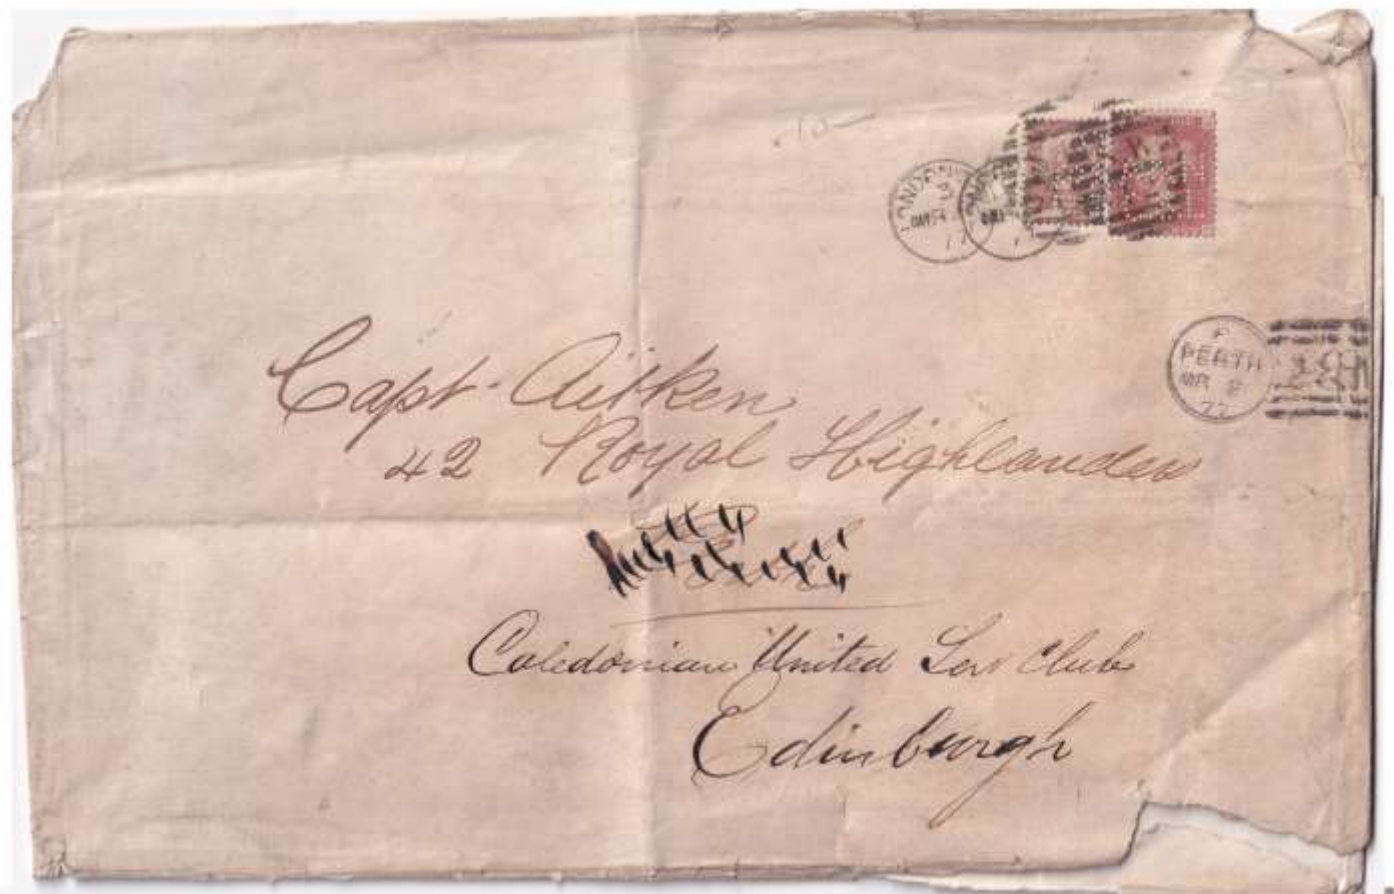 10
LONDON
77
PERTH
MR 2
77
Capt. Aitken
42 Royal Highlanders
Caledonian United Serv Club
Edinburgh